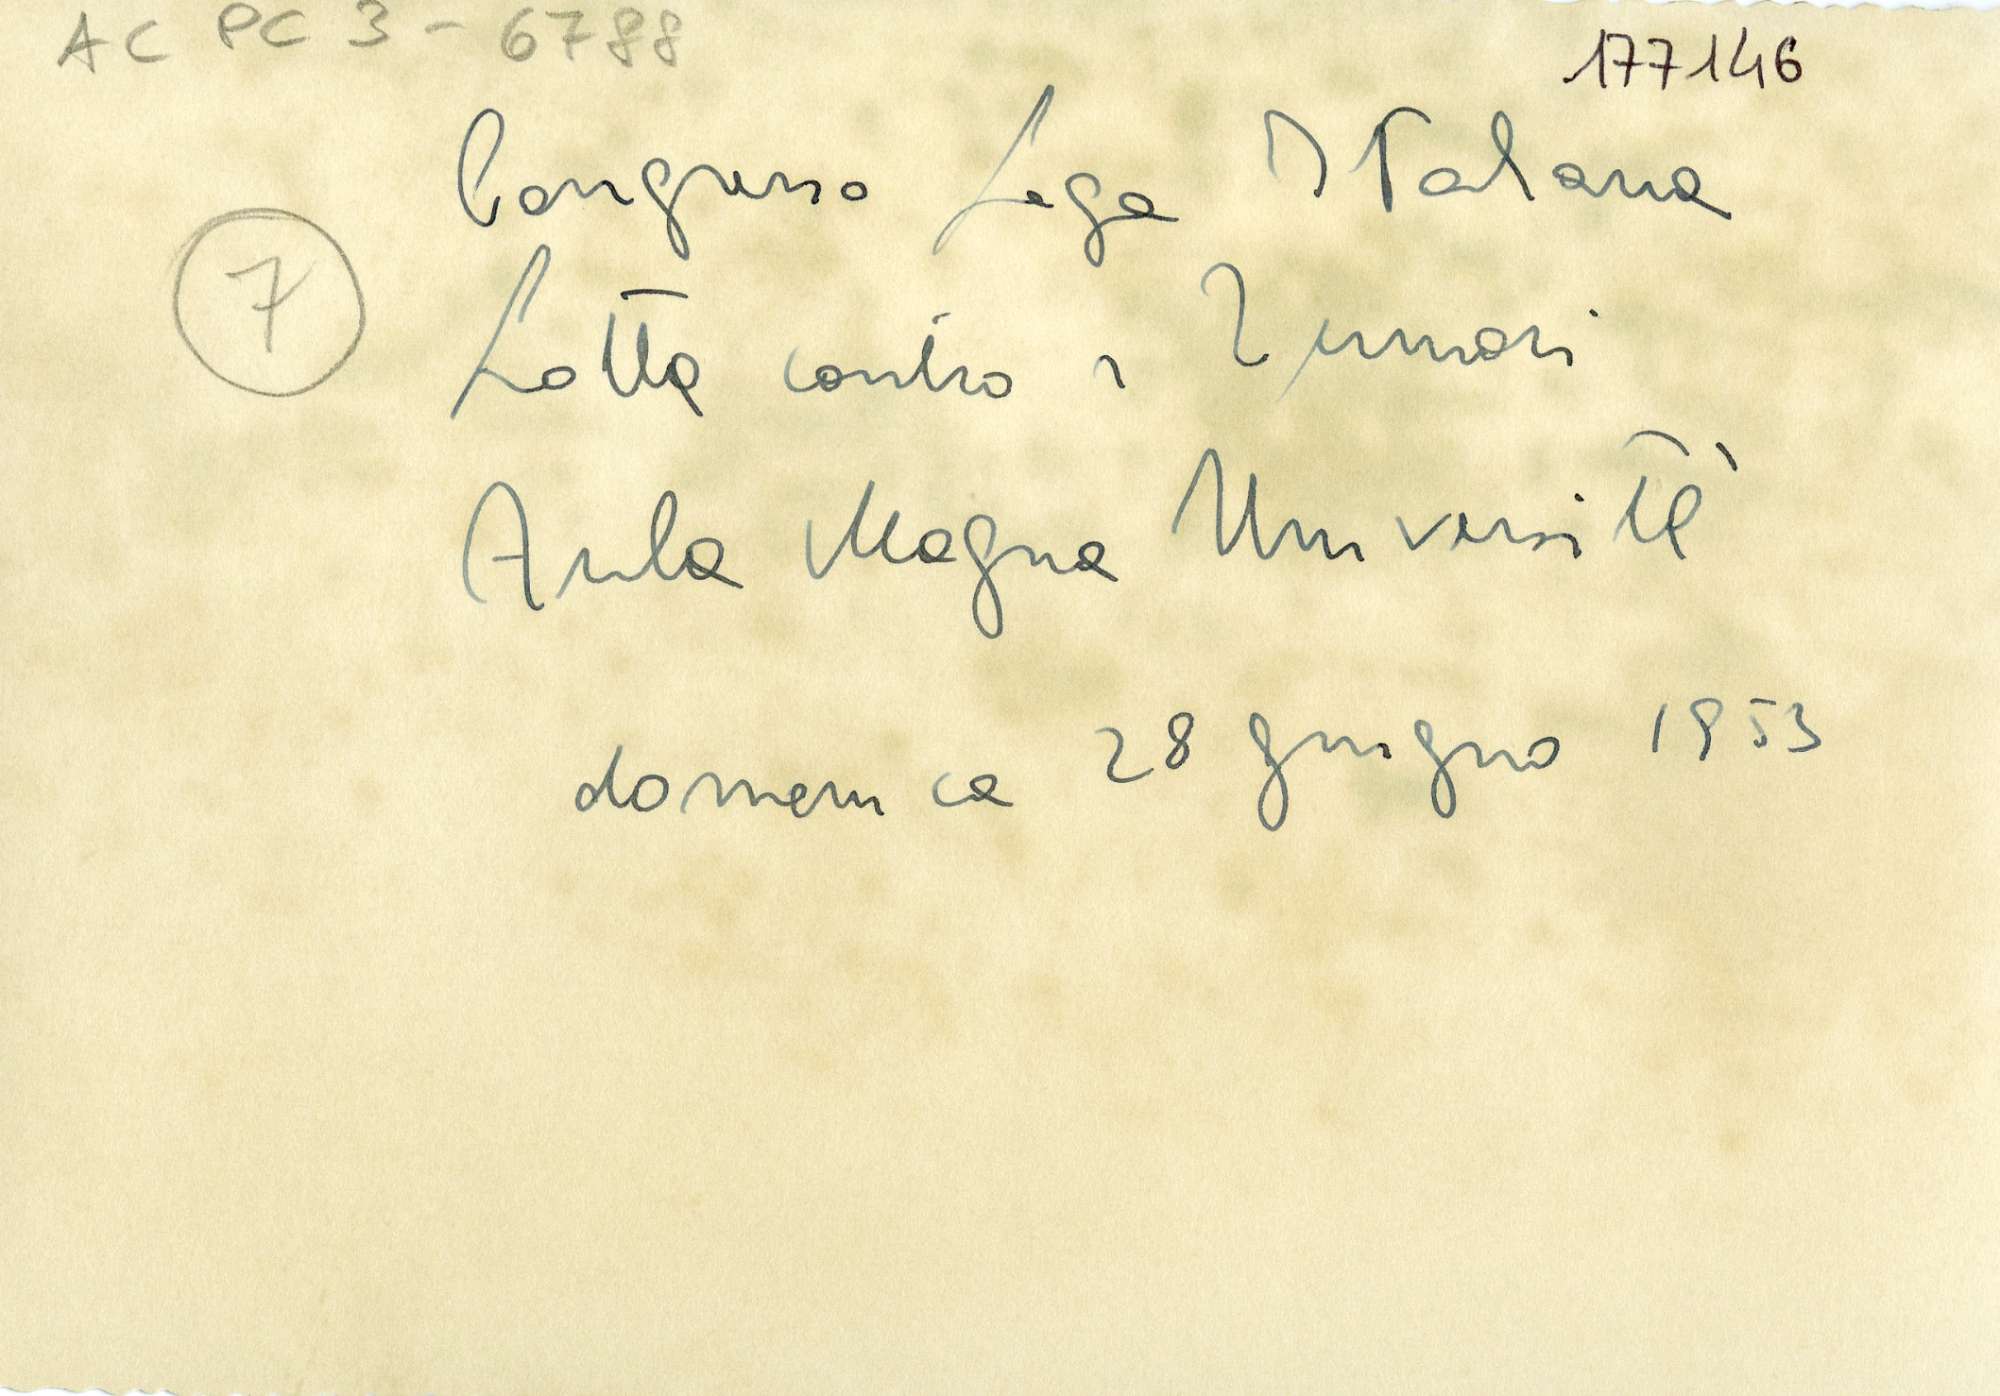 AC PC 3 - 6788
177146
Congresso Lega Italiana
7
Lotta contro i Tumori
Aula Magna Università
domenica 28 giugno 1953